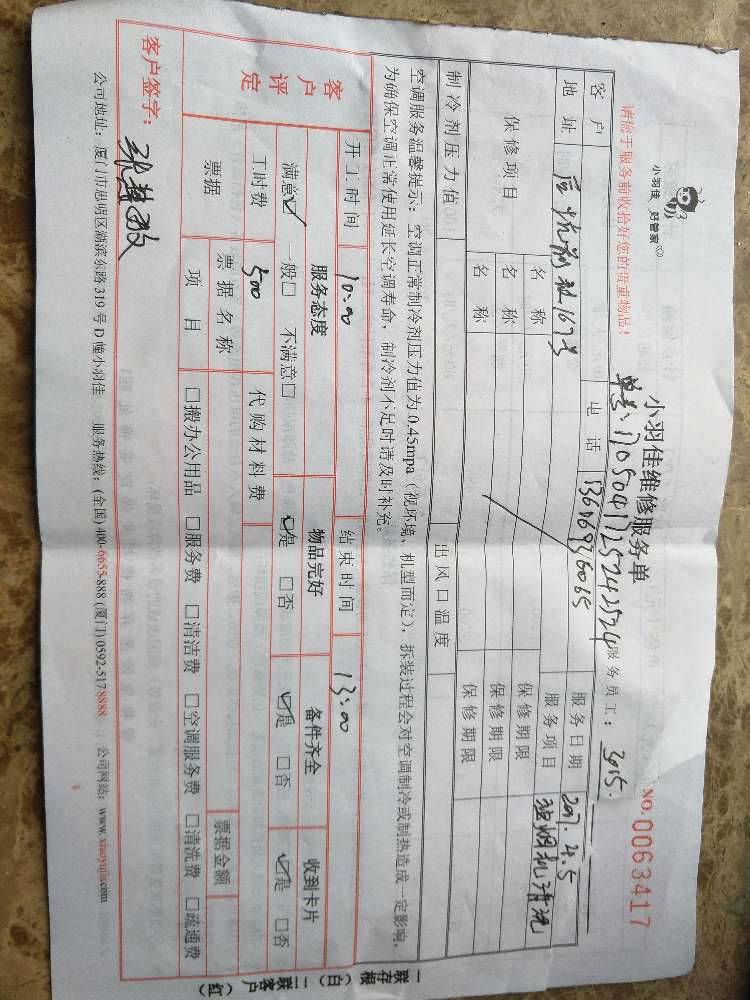 小羽佳 好管家
小羽佳维修服务单
NO.0063417
请您于服务前收拾好您的贵重物品!
单号:17050417252424524 服务员工: 3015.
客户 电话 13606936065 服务日期 2017.4.5
地址 167号 服务项目 抽烟机清洗
保修项目 名称 保修期限
名称 保修期限
名称 保修期限
制冷剂压力值 出风口温度
空调服务温馨提示:空调正常制冷剂压力值为0.45mpa(视环境、机型而定),拆装过程会对空调制冷或制热造成一定影响,
为确保空调正常使用延长空调寿命,制冷剂不足时请及时补充。
开工时间 10:00 结束时间 13:00
客户评定 服务态度 物品完好 备件齐全 收到卡片
满意☑ 一般□ 不满意□ ☑是 □否 ☑是 □否 ☑是 □否
工时费 500 代购材料费
票据 票据名称 票据金额
项目 □搬办公用品 □服务费 □清洁费 □空调服务费 □清洗费 □疏通费
客户签字:
公司地址:厦门市思明区湖滨东路319号D幢小羽佳 服务热线:(全国)400-6655-888 (厦门)0592-5178888 公司网站:www.xiaoyujia.com
一联存根(白) 二联客户(红)